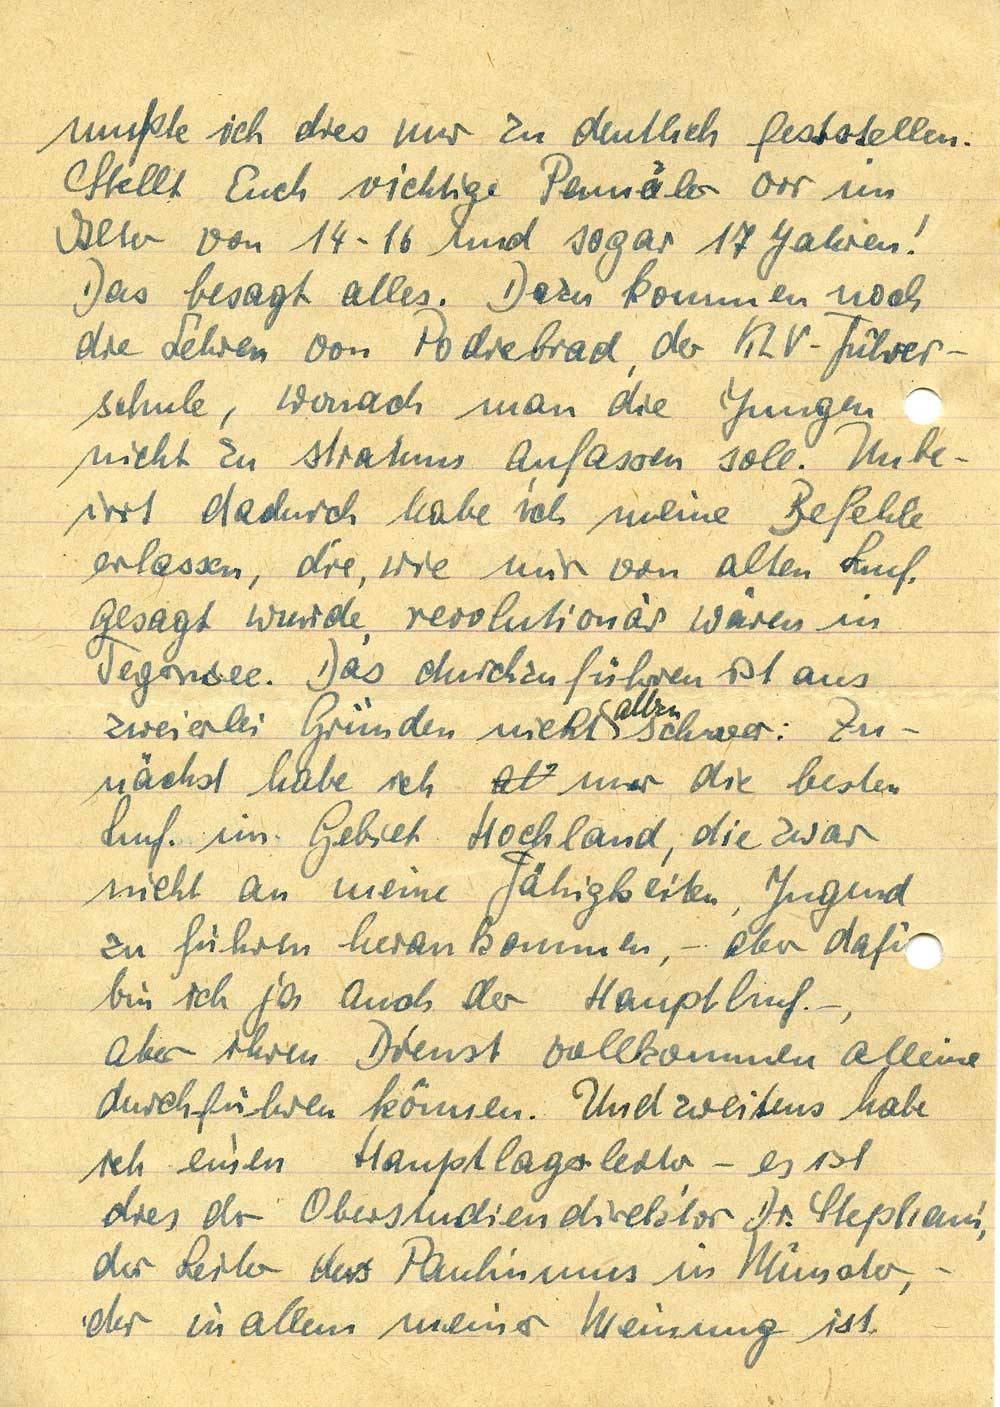 mußte ich dies nur zu deutlich feststellen.
Stellt Euch richtige Pennäler vor im
Alter von 14-16 und sogar 17 Jahren!
Das besagt alles. Dazu kommen noch
die Lehren von Podiebrad, der KLV-Führer-
schule, wonach man die Jungen
nicht zu stramm anfassen soll. Unbe-
irrt dadurch habe ich meine Befehle
erlassen, die, wie mir von alten Lmf.
gesagt wurde, revolutionär wären in
Tegernsee. Das durchzuführen ist aus
zweierlei Gründen nicht allzu schwer: Zu-
nächst habe ich nur die besten
Lmf. im Gebiet Hochland, die zwar
nicht an meine Fähigkeiten, Jugend
zu führen herankommen, – aber dafü
bin ich ja auch der Hauptlmf. –,
aber ihren Dienst vollkommen alleine
durchführen können. Und zweitens habe
ich einen Hauptlagerleiter – es ist
dies der Oberstudiendirektor Dr. Stephani,
der Leiter des Paulinums in Münster, –
der in allem meiner Meinung ist.